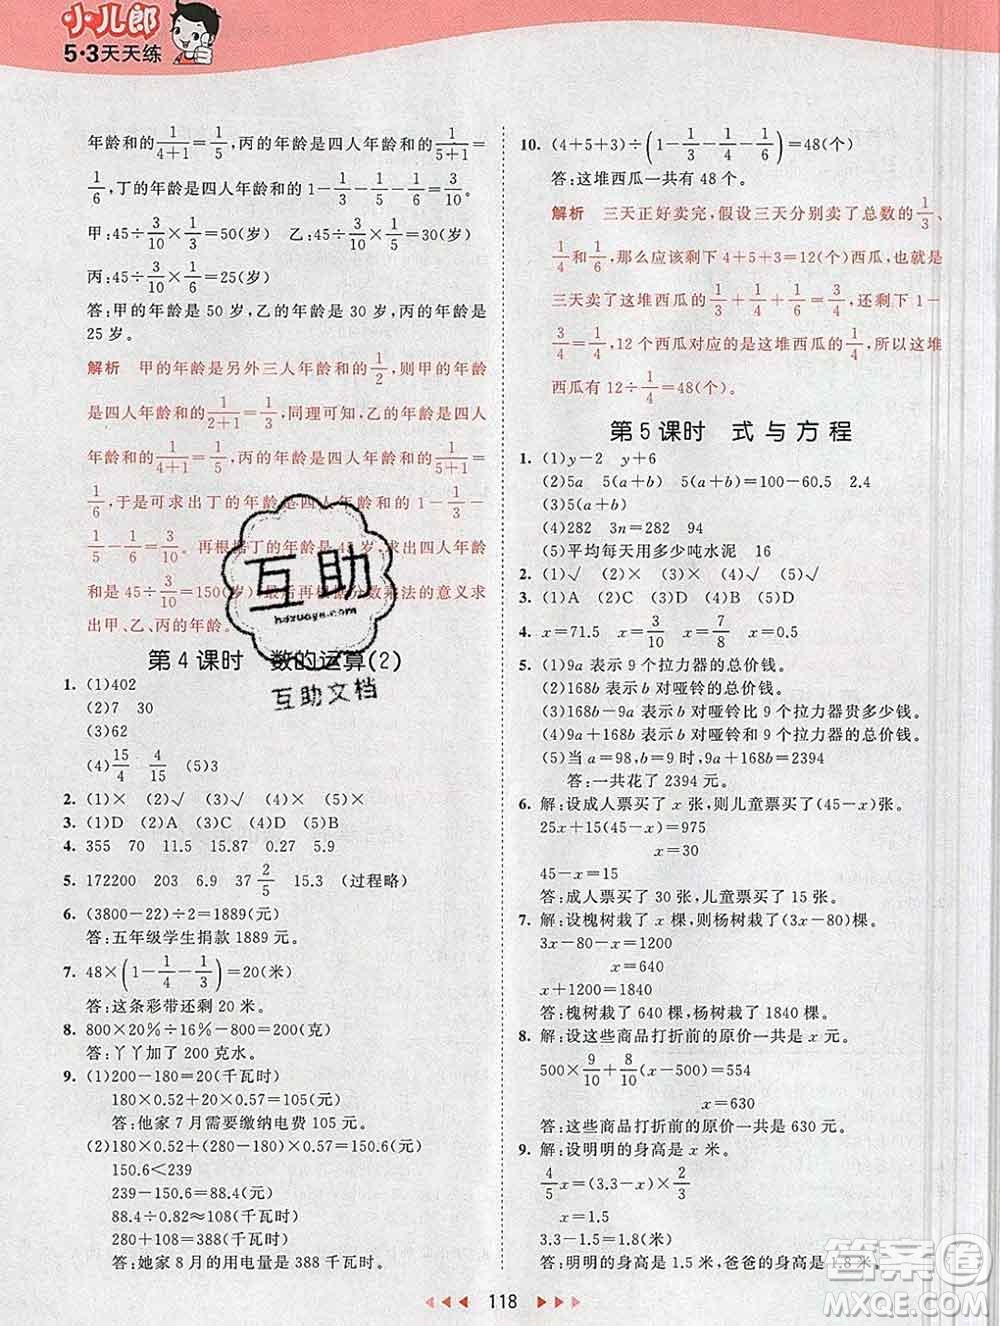 小儿郎
5·3天天练
年龄和的1/(4+1)=1/5,丙的年龄是四人年龄和的1/(5+1)=
1/6,丁的年龄是四人年龄和的1-1/2-1/5-1/6=3/10
甲:45÷3/10×1/3=50(岁) 乙:45÷3/10×1/5=30(岁)
丙:45÷3/10×1/6=25(岁)
答:甲的年龄是 50 岁,乙的年龄是 30 岁,丙的年龄是
25 岁。
解析 甲的年龄是另外三人年龄和的1/2,则甲的年龄
是四人年龄和的1/(2+1)=1/3,同理可知,乙的年龄是四人
年龄和的1/(4+1)=1/5,丙的年龄是四人年龄和的1/(5+1)=
1/6,于是可求出丁的年龄是四人年龄和的1-1/3-
1/5-1/6=3/10。再根据丁的年龄 岁,求出四人年龄
和是 45÷3/10=150(岁),最后再根据分数乘法的意义求
出甲、乙、丙的年龄。
第 4 课时 数的运算(2)
1. (1)402
(2)7 30
(3)62
(4)15/4 4/15 (5)3
2. (1)× (2)√ (3)√ (4)√ (5)×
3. (1)D (2)A (3)C (4)C (5)D
4. 355 70 11.5 15.87 0.27 5.9
5. 172200 203 6.9 37 2/5 15.3 (过程略)
6. (3800-22)÷2=1889(元)
答:五年级学生捐款 1889 元。
7. 48×(1-1/4-1/3)=20(米)
答:这条彩带还剩 20 米。
8. 800×20%÷16%-800=200(克)
答:丫丫加了 200 克水。
9. (1)200-180=20(千瓦时)
180×0.52+20×0.57=105(元)
答:他家 7 月需要缴纳电费 105 元。
(2)180×0.52+(280-180)×0.57=150.6(元)
150.6<239
239-150.6=88.4(元)
88.4÷0.82≈108(千瓦时)
280+108=388(千瓦时)
答:她家 8 月的用电量是 388 千瓦时。
10. (4+5+3)÷(1-1/3-1/4-1/6)=48(个)
答:这堆西瓜一共有 48 个。
解析 三天正好卖完,假设三天分别卖了总数的1/3、
1/4和1/6,那么应该剩下 4+5+3=12(个)西瓜,也就是
三天卖了这堆西瓜的1/3+1/4+1/6=3/4,还剩 1-
3/4=1/4,12 个西瓜对应的是这堆西瓜的1/4,所以这堆
西瓜有 12÷1/4=48(个)。
第 5 课时 式与方程
1. (1)y-2 y+6
(2)5a 5(a+b) 5(a+b)=100-60.5 2.4
(3)5(a+b)
(4)282 3n=282 94
(5)平均每天用多少吨水泥 16
2. (1)√ (2)√ (3)× (4)× (5)√
3. (1)A (2)C (3)D (4)D (5)A
4. x=71.5 x=3/10 x=7/8 x=0.5
5. (1)9a 表示 9 个拉力器的总价钱。
(2)168b 表示 b 对哑铃的总价钱。
(3)168b-9a 表示 b 对哑铃比 9 个拉力器贵多少钱。
(4)9a+168b 表示 b 对哑铃和 9 个拉力器的总价钱。
(5)当 a=98,b=9 时,9a+168b=2394
答:一共花了 2394 元。
6. 解:设成人票买了 x 张,则儿童票买了(45-x)张。
25x+15(45-x)=975
x=30
45-x=15
答:成人票买了 30 张,儿童票买了 15 张。
7. 解:设槐树栽了 x 棵,则杨树栽了(3x-80)棵。
3x-80-x=1200
x=640
x+1200=1840
答:槐树栽了 640 棵,杨树栽了 1840 棵。
8. 解:设这些商品打折前的原价一共是 x 元。
500×9/10+8/10(x-500)=554
x=630
答:这些商品打折前的原价一共是 630 元。
9. 解:设明明的身高是 x 米。
4/5x=(3.3-x)×2/3
x=1.5
3.3-1.5=1.8(米)
答:明明的身高是 1.5 米,爸爸的身高是 1.8 米。
互助
hdzuoye.com
互助文档
118
答案圈
MXQE.COM